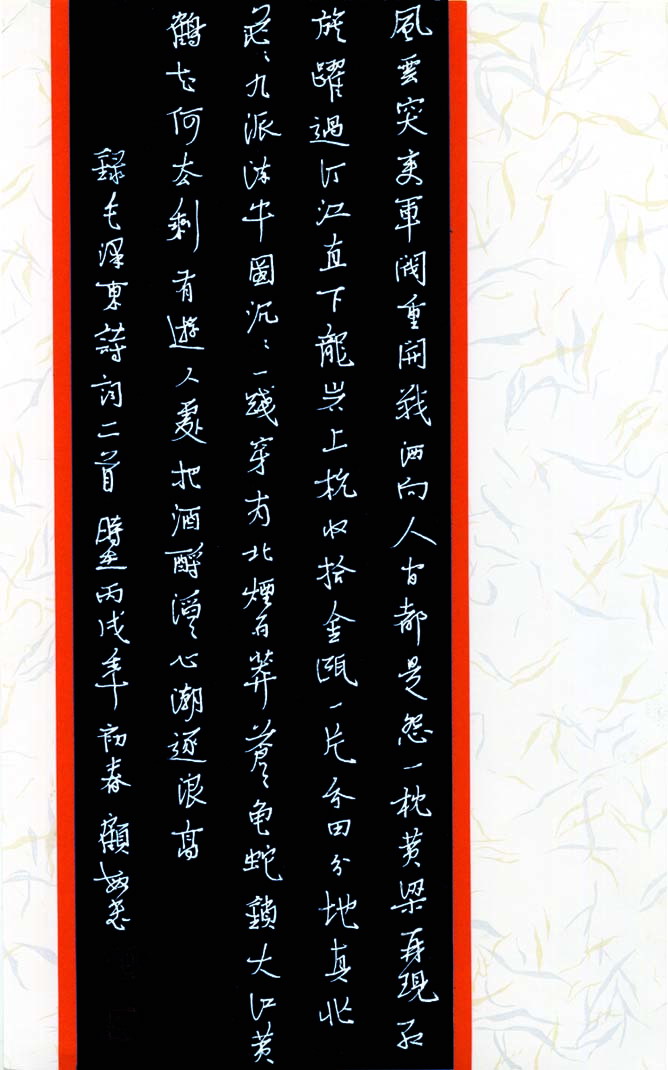 風雲突变軍閥重開戰洒向人间都是怨一枕黄梁再現红
旗躍過汀江直下龍岩上杭收拾金瓯一片分田分地真忙
茫〻九派流中國沉〻一綫穿南北煙雨莽蒼〻龟蛇鎖大江黄
鶴知何去剩有遊人處把酒酹滔〻心潮逐浪高
錄毛澤東詩詞二首 時在丙戌年初春 顧